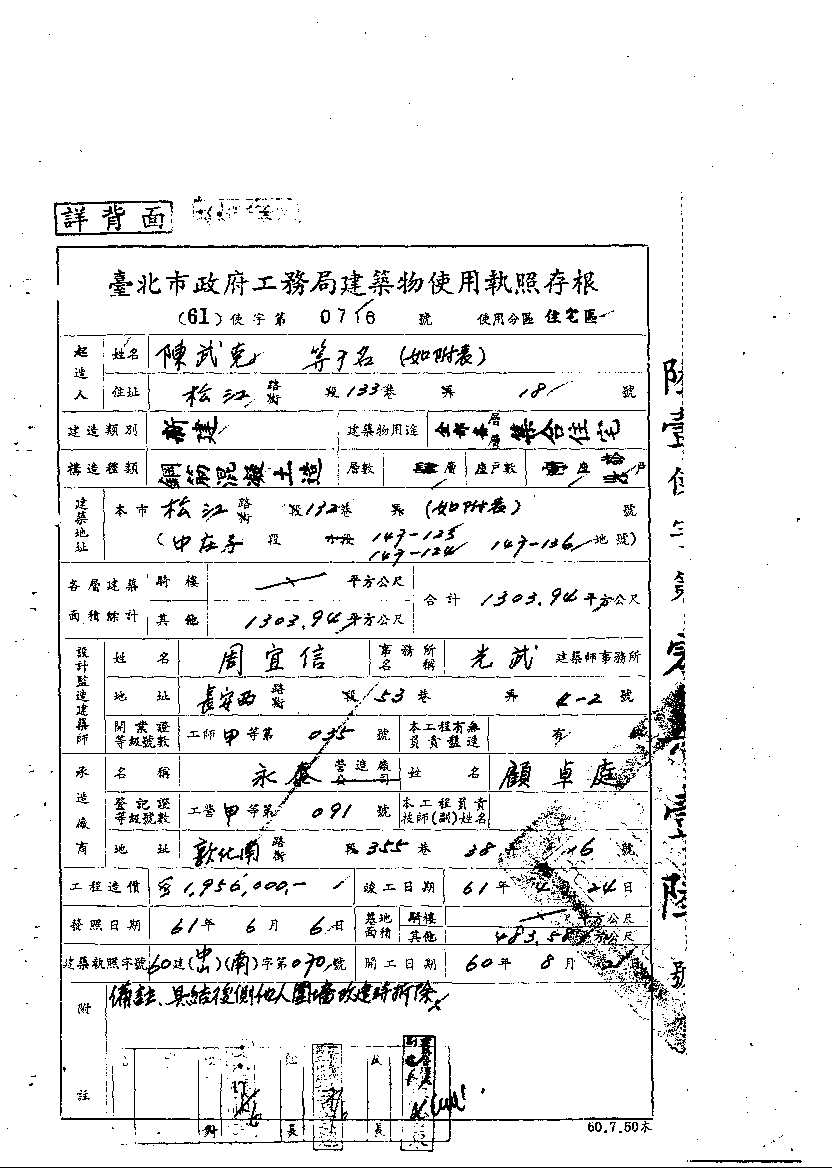 詳背面
臺北市政府工務局建築物使用執照存根
(61)使字第 0716 號 使用分區 住宅區
起造人 姓名 陳武克 等于名 (如附表)
住址 松江 路街 段 133巷 弄 18 號
建造類別 新建 建築物用途 集合住宅
構造種類 鋼筋混凝土造 層數 層 座戶數 座 戶
建築地址 本市 松江 路街 段 132巷 弄 (如附表) 號
(中庄子 段 小段 147-125 147-124 147-136 地號)
各層建築面積綜計 騎樓 平方公尺 合計 1303.94 平方公尺
其他 1303.94 平方公尺
設計監造建築師 姓名 周宜信 事務所名稱 光武 建築師事務所
地址 長安西 路街 段 53 巷 弄 4-2 號
開業證等級號數 工師甲等第 035 號 本工程有無負責監造 有
承造廠商 名稱 永泰 營造廠公司 姓名 顧卓庭
登記證等級號數 工營甲等第 091 號 本工程負責技師(副)姓名
地址 敦化南 路街 段 355 巷 38 弄 16 號
工程造價 1,956,000.- 竣工日期 61年 4月 24日
發照日期 61年 6月 6日 基地面積 騎樓 平方公尺
其他 483.58 平方公尺
建築執照字號 60建(中山)(南)字第070號 開工日期 60年 8月 日
附註 備註、具結後側他人圍墻改建時拆除
60.7.50本
陸壹使字第零柒壹陸號